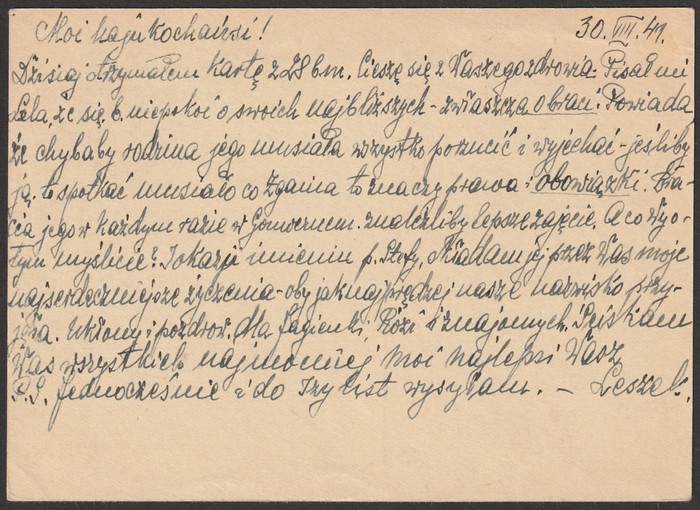 Moi najukochańsi! 30.VIII.41.
Dzisiaj otrzymałem kartę z 28 bm. Cieszę się z Waszego zdrowia. Pisał mi
Lela, że się b. niepokoi o swoich najbliższych - zwłaszcza o braci. Powiada
że chybaby rodzina jego musiała wszystko porzucić i wyjechać - jeśliby
ją to spotkać musiało co Zgania to znaczy prawa i obowiązki. Bra-
cia jego w każdym razie w Gouvernem. znaleźliby lepsze zajęcie. A co Wy o
tym myślicie? Z okazji imienin p. Stefy, składam jej przez Was moje
najserdeczniejsze życzenia - oby jaknajprędzej nasze nazwisko przy-
jęła. Ukłony i pozdrow. dla Jagienki, Rózi i znajomych. Ściskam
Was wszystkich najmocniej moi najlepsi Wasz
P.S. Jednocześnie i do Izy list wysyłam. - Leszek.